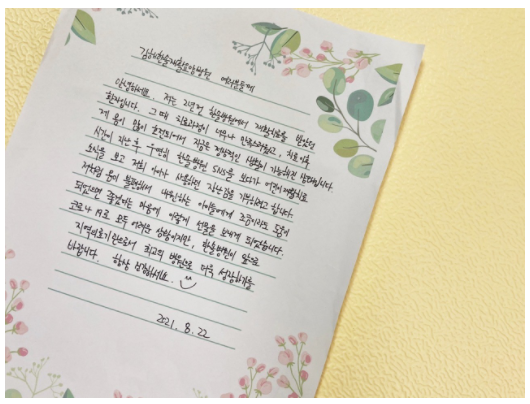 김해한솔재활요양병원 여러분들께
안녕하세요. 저는 2년전 한솔병원에서 재활치료를 받았던
환자입니다. 그 때 치료과정이 너무나 만족스러웠고, 치료 이후
제 몸이 많이 호전되어서 지금은 정상적인 생활이 가능해진 상태입니다.
시간이 지난 후 우연히 한솔병원 SNS를 보다가 어린이재활치료
소식을 보고 저희 아이가 사용하던 장난감을 기부하려고 합니다.
저처럼 몸이 불편해서 내원하는 아이들에게 조금이라도 도움이
되었으면 좋겠다는 마음에 이렇게 선물을 보내게 되었습니다.
코로나 19로 모두 어려운 상황이지만, 한솔병원이 앞으로
지역의료기관으로서 최고의 병원으로 더욱 성장하기를
바랍니다. 항상 건강하세요.
2021. 8. 22